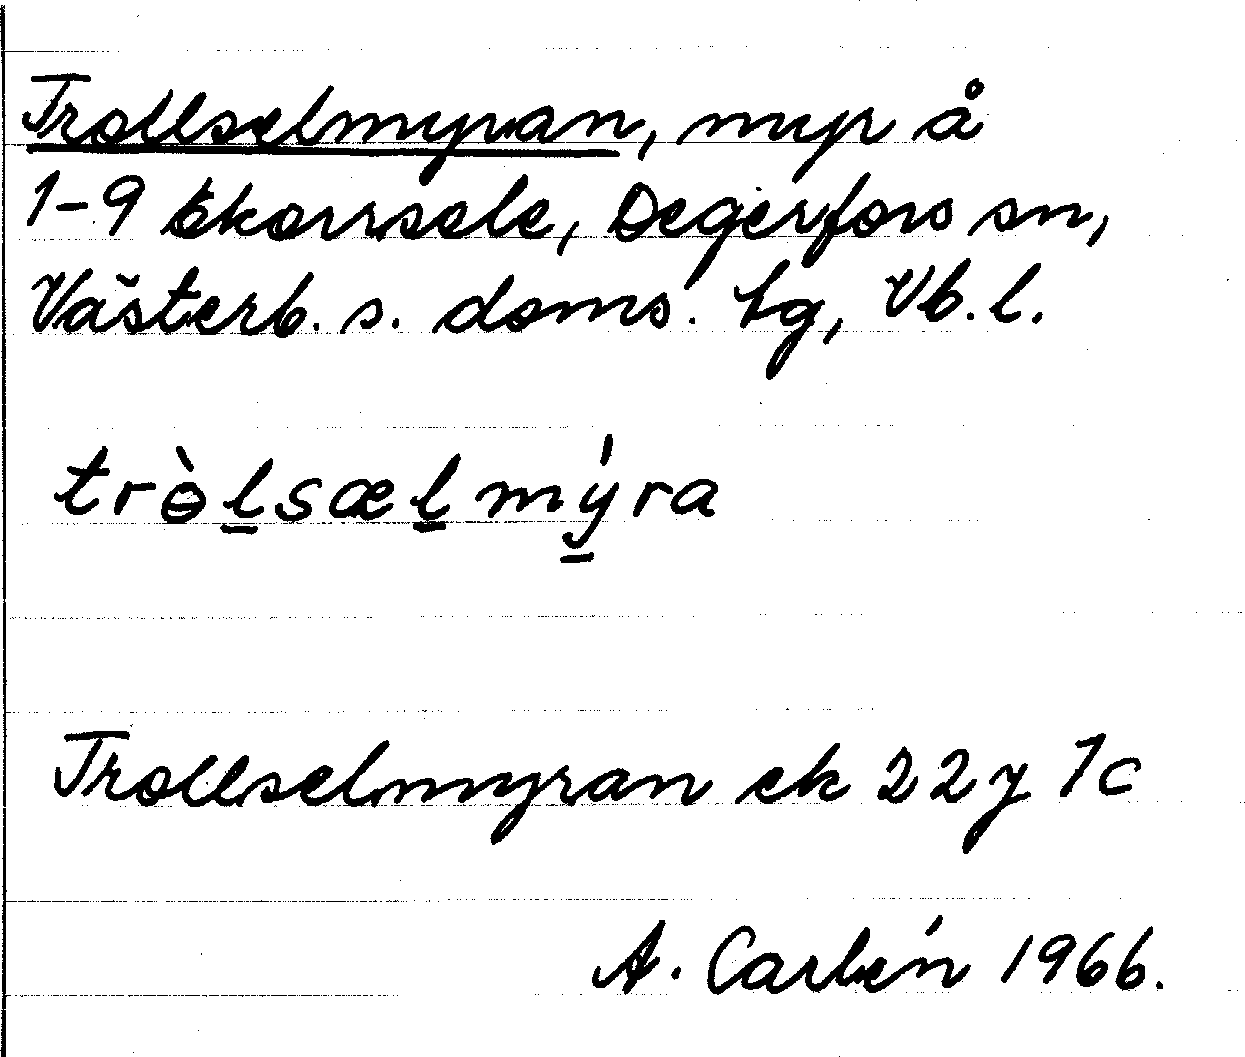 Trollselmyran, myr å
1-9 Ekorrsele, Degerfors sn,
Västerb. s. doms. tg, Vb. l.
trɵ̀l̲sæl̲mý̲ra
Trollselmyran ek 22 y 7c
A. Carlén 1966.